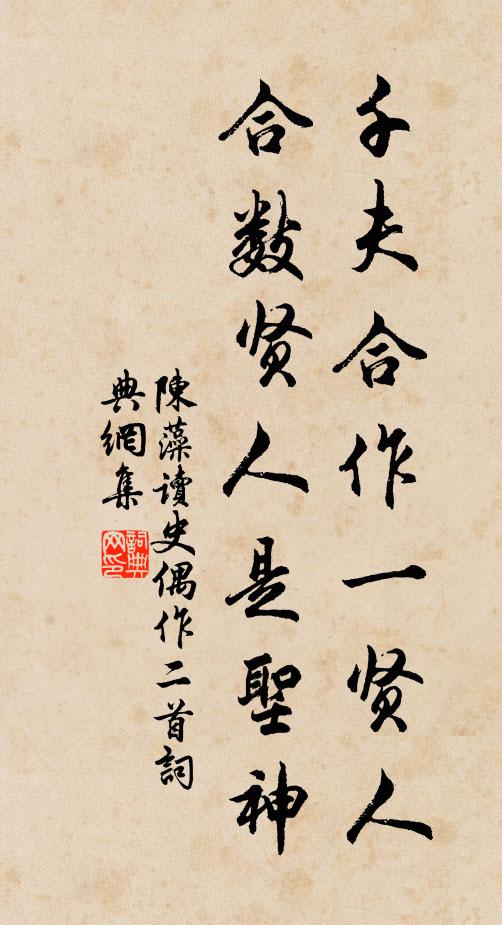 千夫合作一贤人
合数贤人是聖神
陳藻讀史偶作二首詞
典網集
詞典
网印